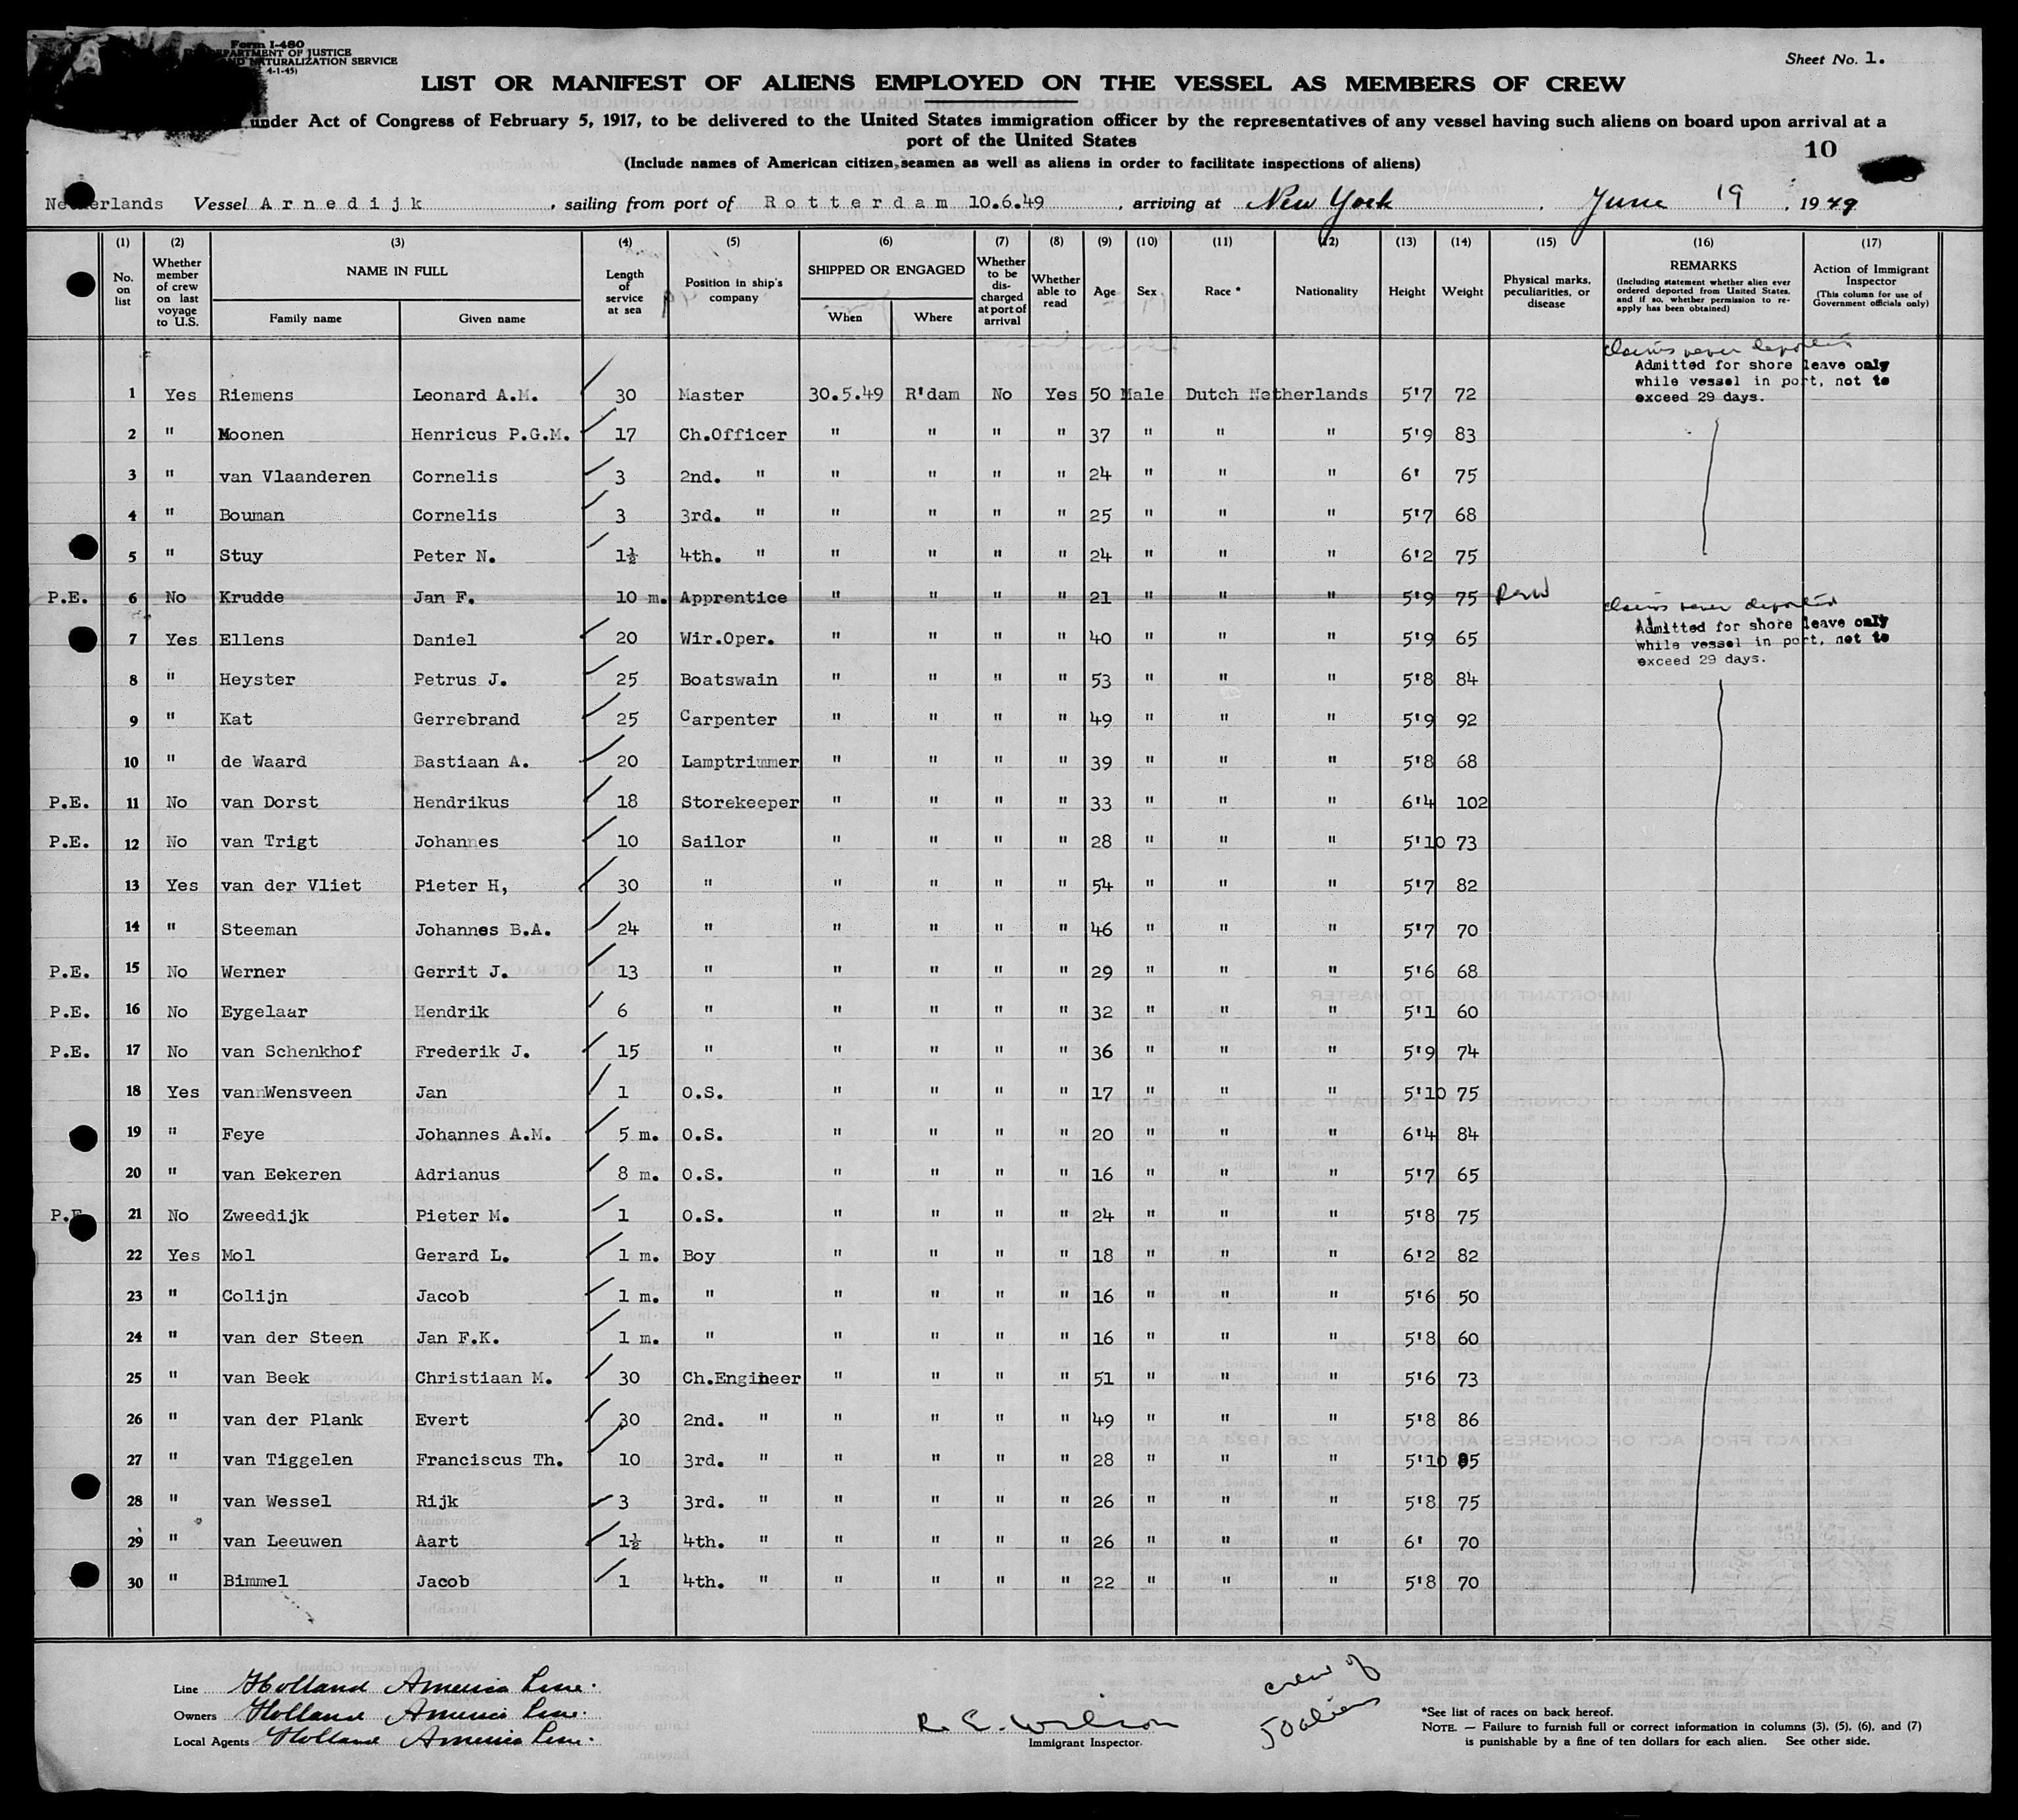 Form I-480
DEPARTMENT OF JUSTICE
AND NATURALIZATION SERVICE
4-1-45)
Sheet No. 1.
LIST OR MANIFEST OF ALIENS EMPLOYED ON THE VESSEL AS MEMBERS OF CREW
under Act of Congress of February 5, 1917, to be delivered to the United States immigration officer by the representatives of any vessel having such aliens on board upon arrival at a
port of the United States
10
(Include names of American citizen seamen as well as aliens in order to facilitate inspections of aliens)
Netherlands Vessel Arnedijk, sailing from port of Rotterdam 10.6.49, arriving at New York, June 19, 1949
(1) (2) (3) (4) (5) (6) (7) (8) (9) (10) (11) (12) (13) (14) (15) (16) (17)
No. on list
Whether member of crew on last voyage to U.S.
NAME IN FULL
Family name Given name
Length of service at sea
Position in ship's company
SHIPPED OR ENGAGED
When Where
Whether to be discharged at port of arrival
Whether able to read
Age Sex Race * Nationality Height Weight
Physical marks, peculiarities, or disease
REMARKS
(Including statement whether alien ever ordered deported from United States, and if so, whether permission to re-apply has been obtained)
Action of Immigrant Inspector
(This column for use of Government officials only)
claims never deported
Admitted for shore leave only
while vessel in port, not to
exceed 29 days.
1 Yes Riemens Leonard A.M. 30 Master 30.5.49 R'dam No Yes 50 Male Dutch Netherlands 5'7 72
2 " Moonen Henricus P.G.M. 17 Ch.Officer " " " " 37 " " " 5'9 83
3 " van Vlaanderen Cornelis 3 2nd. " " " " " 24 " " " 6' 75
4 " Bouman Cornelis 3 3rd. " " " " " 25 " " " 5'7 68
5 " Stuy Peter N. 1½ 4th. " " " " " 24 " " " 6'2 75
P.E. 6 No Krudde Jan F. 10 m. Apprentice " " " " 21 " " " 5'9 75
claims never deported
Admitted for shore leave only
while vessel in port, not to
exceed 29 days.
7 Yes Ellens Daniel 20 Wir.Oper. " " " " 40 " " " 5'9 65
8 " Heyster Petrus J. 25 Boatswain " " " " 53 " " " 5'8 84
9 " Kat Gerrebrand 25 Carpenter " " " " 49 " " " 5'9 92
10 " de Waard Bastiaan A. 20 Lamptrimmer " " " " 39 " " " 5'8 68
P.E. 11 No van Dorst Hendrikus 18 Storekeeper " " " " 33 " " " 6'4 102
P.E. 12 No van Trigt Johannes 10 Sailor " " " " 28 " " " 5'10 73
13 Yes van der Vliet Pieter H, 30 " " " " " 54 " " " 5'7 82
14 " Steeman Johannes B.A. 24 " " " " " 46 " " " 5'7 70
P.E. 15 No Werner Gerrit J. 13 " " " " " 29 " " " 5'6 68
P.E. 16 No Eygelaar Hendrik 6 " " " " " 32 " " " 5'1 60
P.E. 17 No van Schenkhof Frederik J. 15 " " " " " 36 " " " 5'9 74
18 Yes vannWensveen Jan 1 O.S. " " " " 17 " " " 5'10 75
19 " Feye Johannes A.M. 5 m. O.S. " " " " 20 " " " 6'4 84
20 " van Eekeren Adrianus 8 m. O.S. " " " " 16 " " " 5'7 65
P.E. 21 No Zweedijk Pieter M. 1 O.S. " " " " 24 " " " 5'8 75
22 Yes Mol Gerard L. 1 m. Boy " " " " 18 " " " 6'2 82
23 " Colijn Jacob 1 m. " " " " " 16 " " " 5'6 50
24 " van der Steen Jan F.K. 1 m. " " " " " 16 " " " 5'8 60
25 " van Beek Christiaan M. 30 Ch.Engineer " " " " 51 " " " 5'6 73
26 " van der Plank Evert 30 2nd. " " " " " 49 " " " 5'8 86
27 " van Tiggelen Franciscus Th. 10 3rd. " " " " " 28 " " " 5'10 85
28 " van Wessel Rijk 3 3rd. " " " " " 26 " " " 5'8 75
29 " van Leeuwen Aart 1½ 4th. " " " " " 26 " " " 6' 70
30 " Bimmel Jacob 1 4th. " " " " " 22 " " " 5'8 70
Line Holland America Line.
Owners Holland America Line.
Local Agents Holland America Line.
R. E. Wilson
Immigrant Inspector.
crew of
50 aliens
*See list of races on back hereof.
NOTE. — Failure to furnish full or correct information in columns (3), (5), (6), and (7)
is punishable by a fine of ten dollars for each alien. See other side.